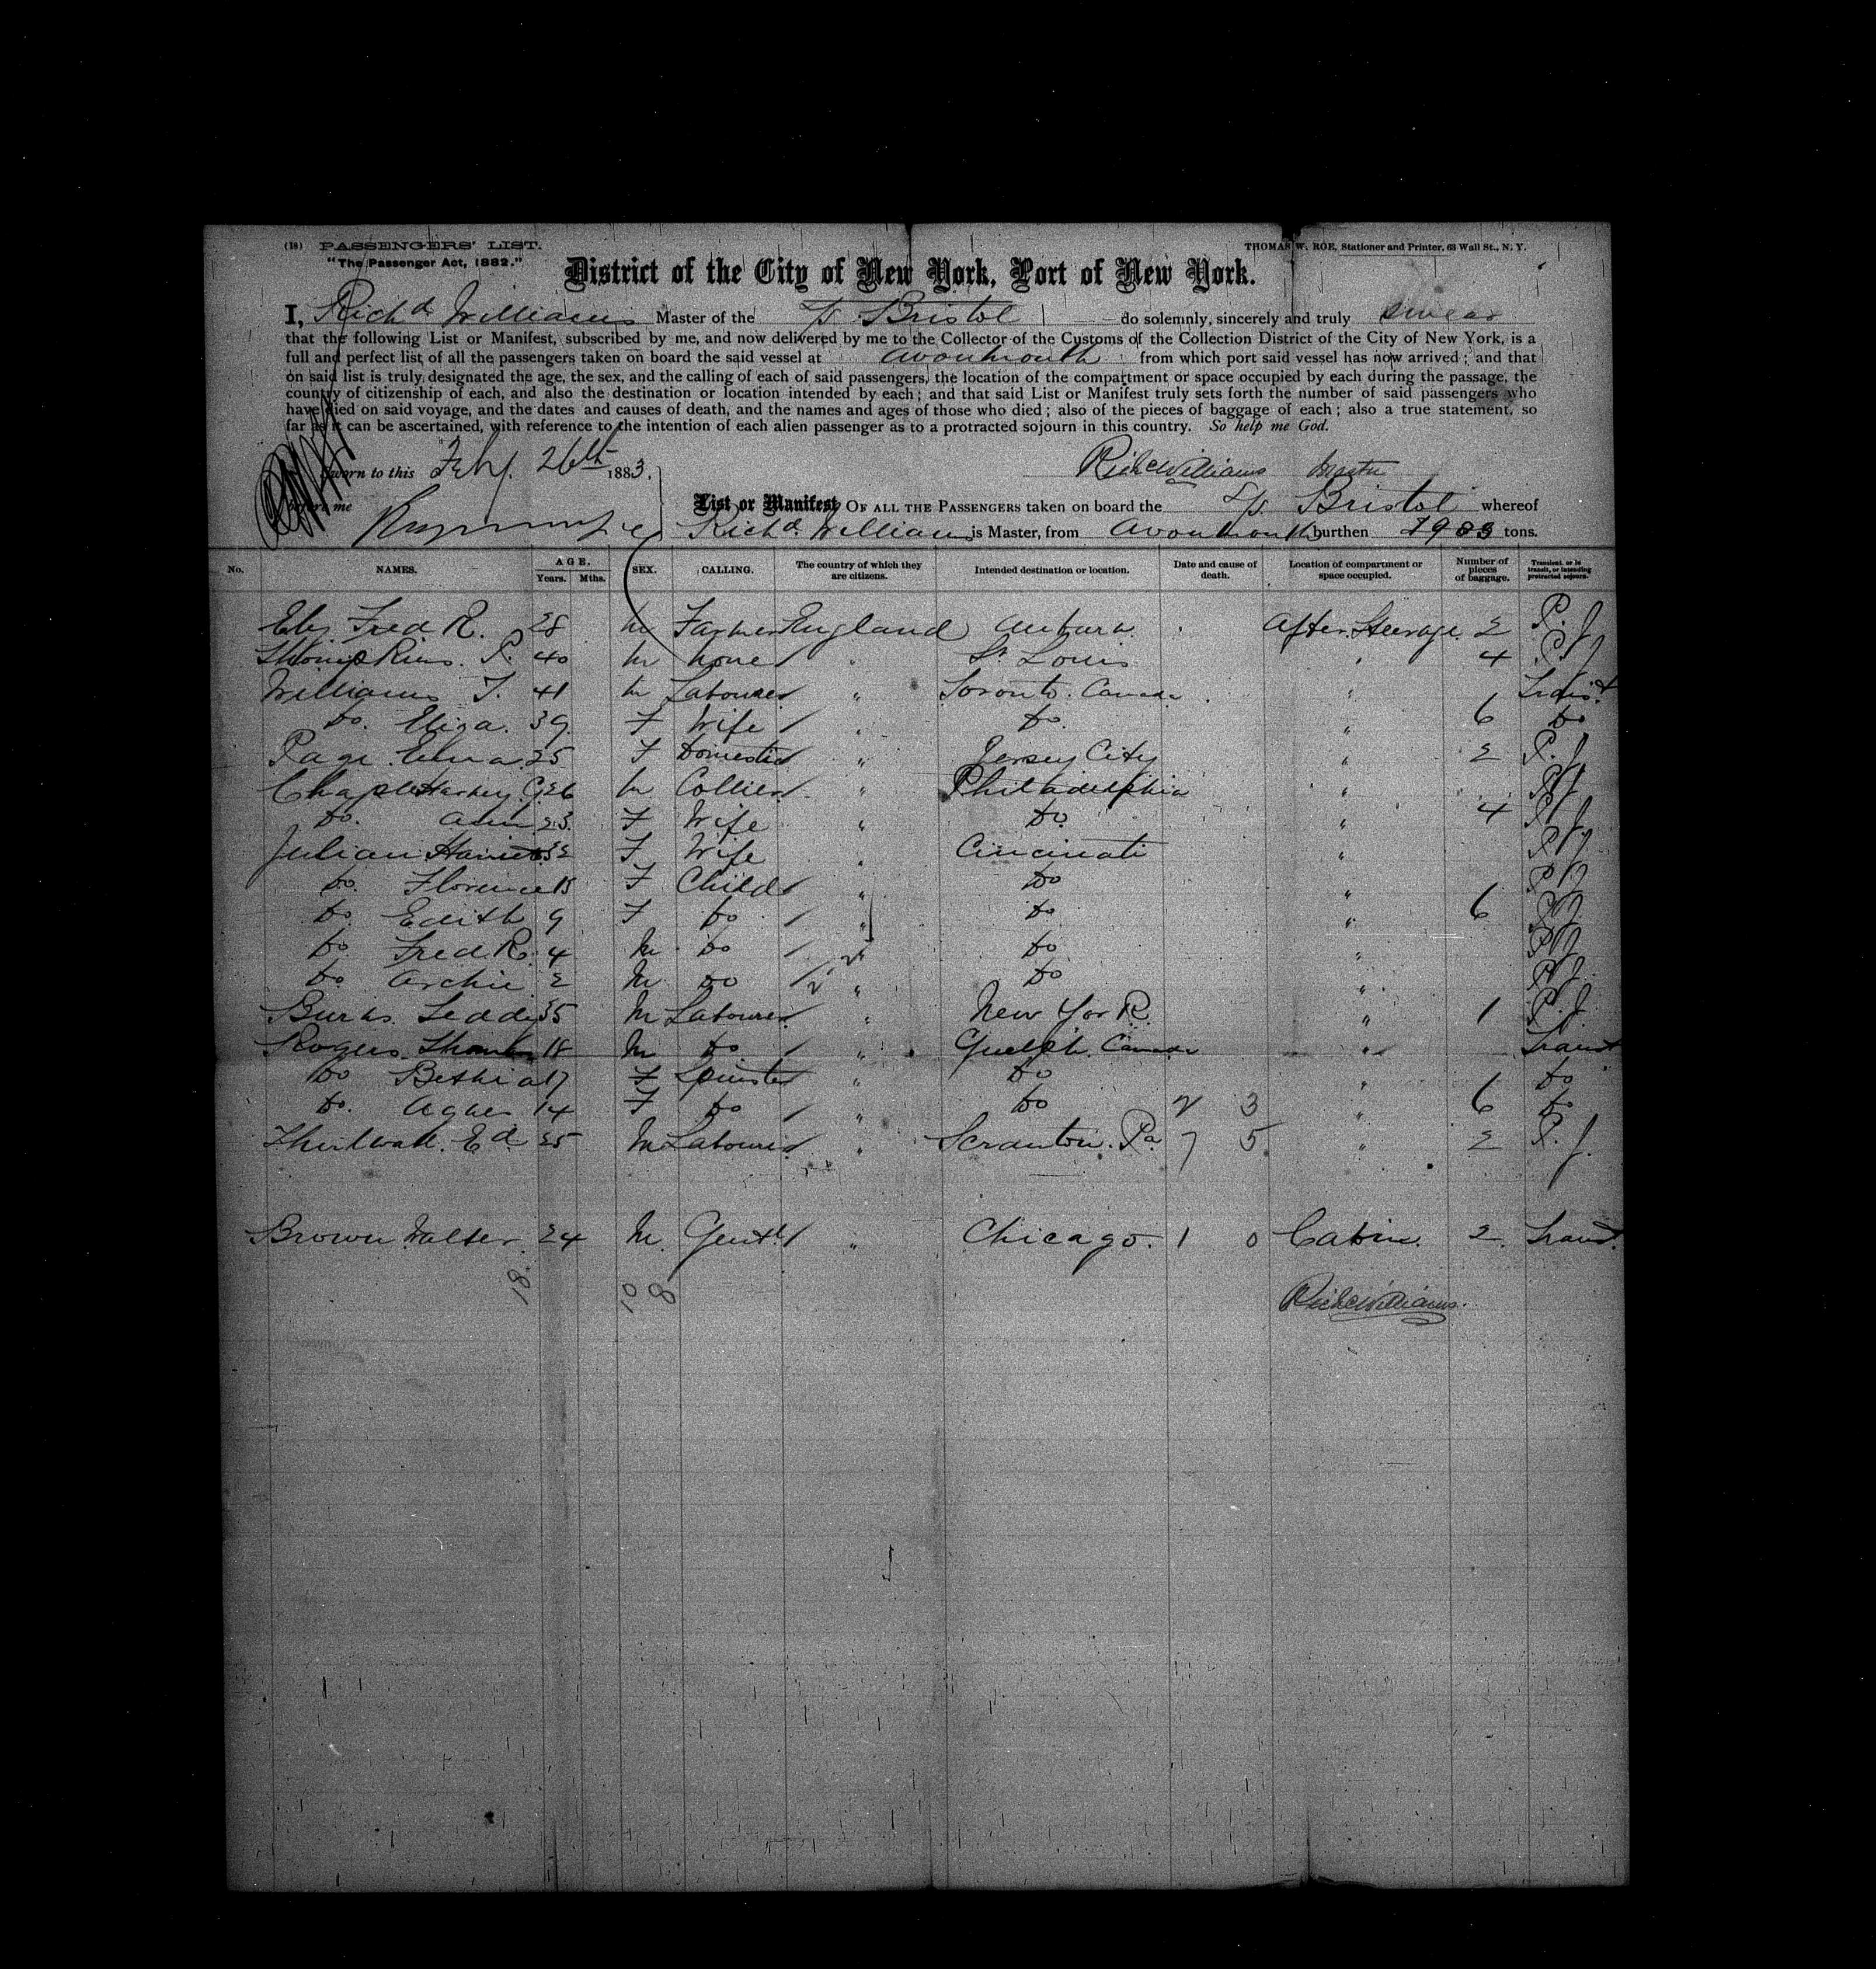 (18) PASSENGERS' LIST. THOMAS W. ROE, Stationer and Printer, 63 Wall St., N. Y.
"The Passenger Act, 1882."
District of the City of New York, Port of New York.
I, Richd Williams Master of the S/s Bristol do solemnly, sincerely and truly swear
that the following List or Manifest, subscribed by me, and now delivered by me to the Collector of the Customs of the Collection District of the City of New York, is a
full and perfect list of all the passengers taken on board the said vessel at Avonmouth from which port said vessel has now arrived; and that
on said list is truly designated the age, the sex, and the calling of each of said passengers, the location of the compartment or space occupied by each during the passage, the
country of citizenship of each, and also the destination or location intended by each; and that said List or Manifest truly sets forth the number of said passengers who
have died on said voyage, and the dates and causes of death, and the names and ages of those who died; also of the pieces of baggage of each; also a true statement, so
far as it can be ascertained, with reference to the intention of each alien passenger as to a protracted sojourn in this country. So help me God.
Sworn to this Feby. 26th 1883. Richd Williams Master
before me List or Manifest OF ALL THE PASSENGERS taken on board the S/s Bristol whereof
Richd. Williams is Master, from Avonmouth burthen tons.
No. NAMES. AGE. Years. Mths. SEX. CALLING. The country of which they are citizens. Intended destination or location. Date and cause of death. Location of compartment or space occupied. Number of pieces of baggage. Transient, or in transit, or intending protracted sojourn.
Fred R. 28 M Farmer England Auburn After Steerage 2 P. J.
P. 40 M None " St. Louis " 4 P. J.
Williams T. 41 M Labourer " Toronto. Canada "
do. Eliza. 39 F Wife " do. " 6 do
Page 25 F Domestic " Jersey City " 2 P. J.
26 M Collier " Philadelphia " P. J.
do. Ann 23 F Wife " do " 4 P. J.
Julian Harriet 32 F Wife " Cincinati " P. J.
do. Florence 15 F Child " do " P. J.
do Edith 9 F do " do " 6 P. J.
do Fred R. 4 M do " do " P. J.
do Archie 2 M do " do " P. J.
35 M Labourer " New York " 1 P. J.
Rogers 18 M do " Guelph. Canada " Transt
do Bethia 17 F Spinster " do " do
do. Agnes 14 F do " do 2 3 " 6 do
Thirlwall. Ed. 25 M Labourer " Scranton. Pa 7 5 " 2 P. J.
Brown Walter 24 M. Gentl " Chicago. 1 0 Cabin. 2 Transt.
18. 10 8 Richd Williams.